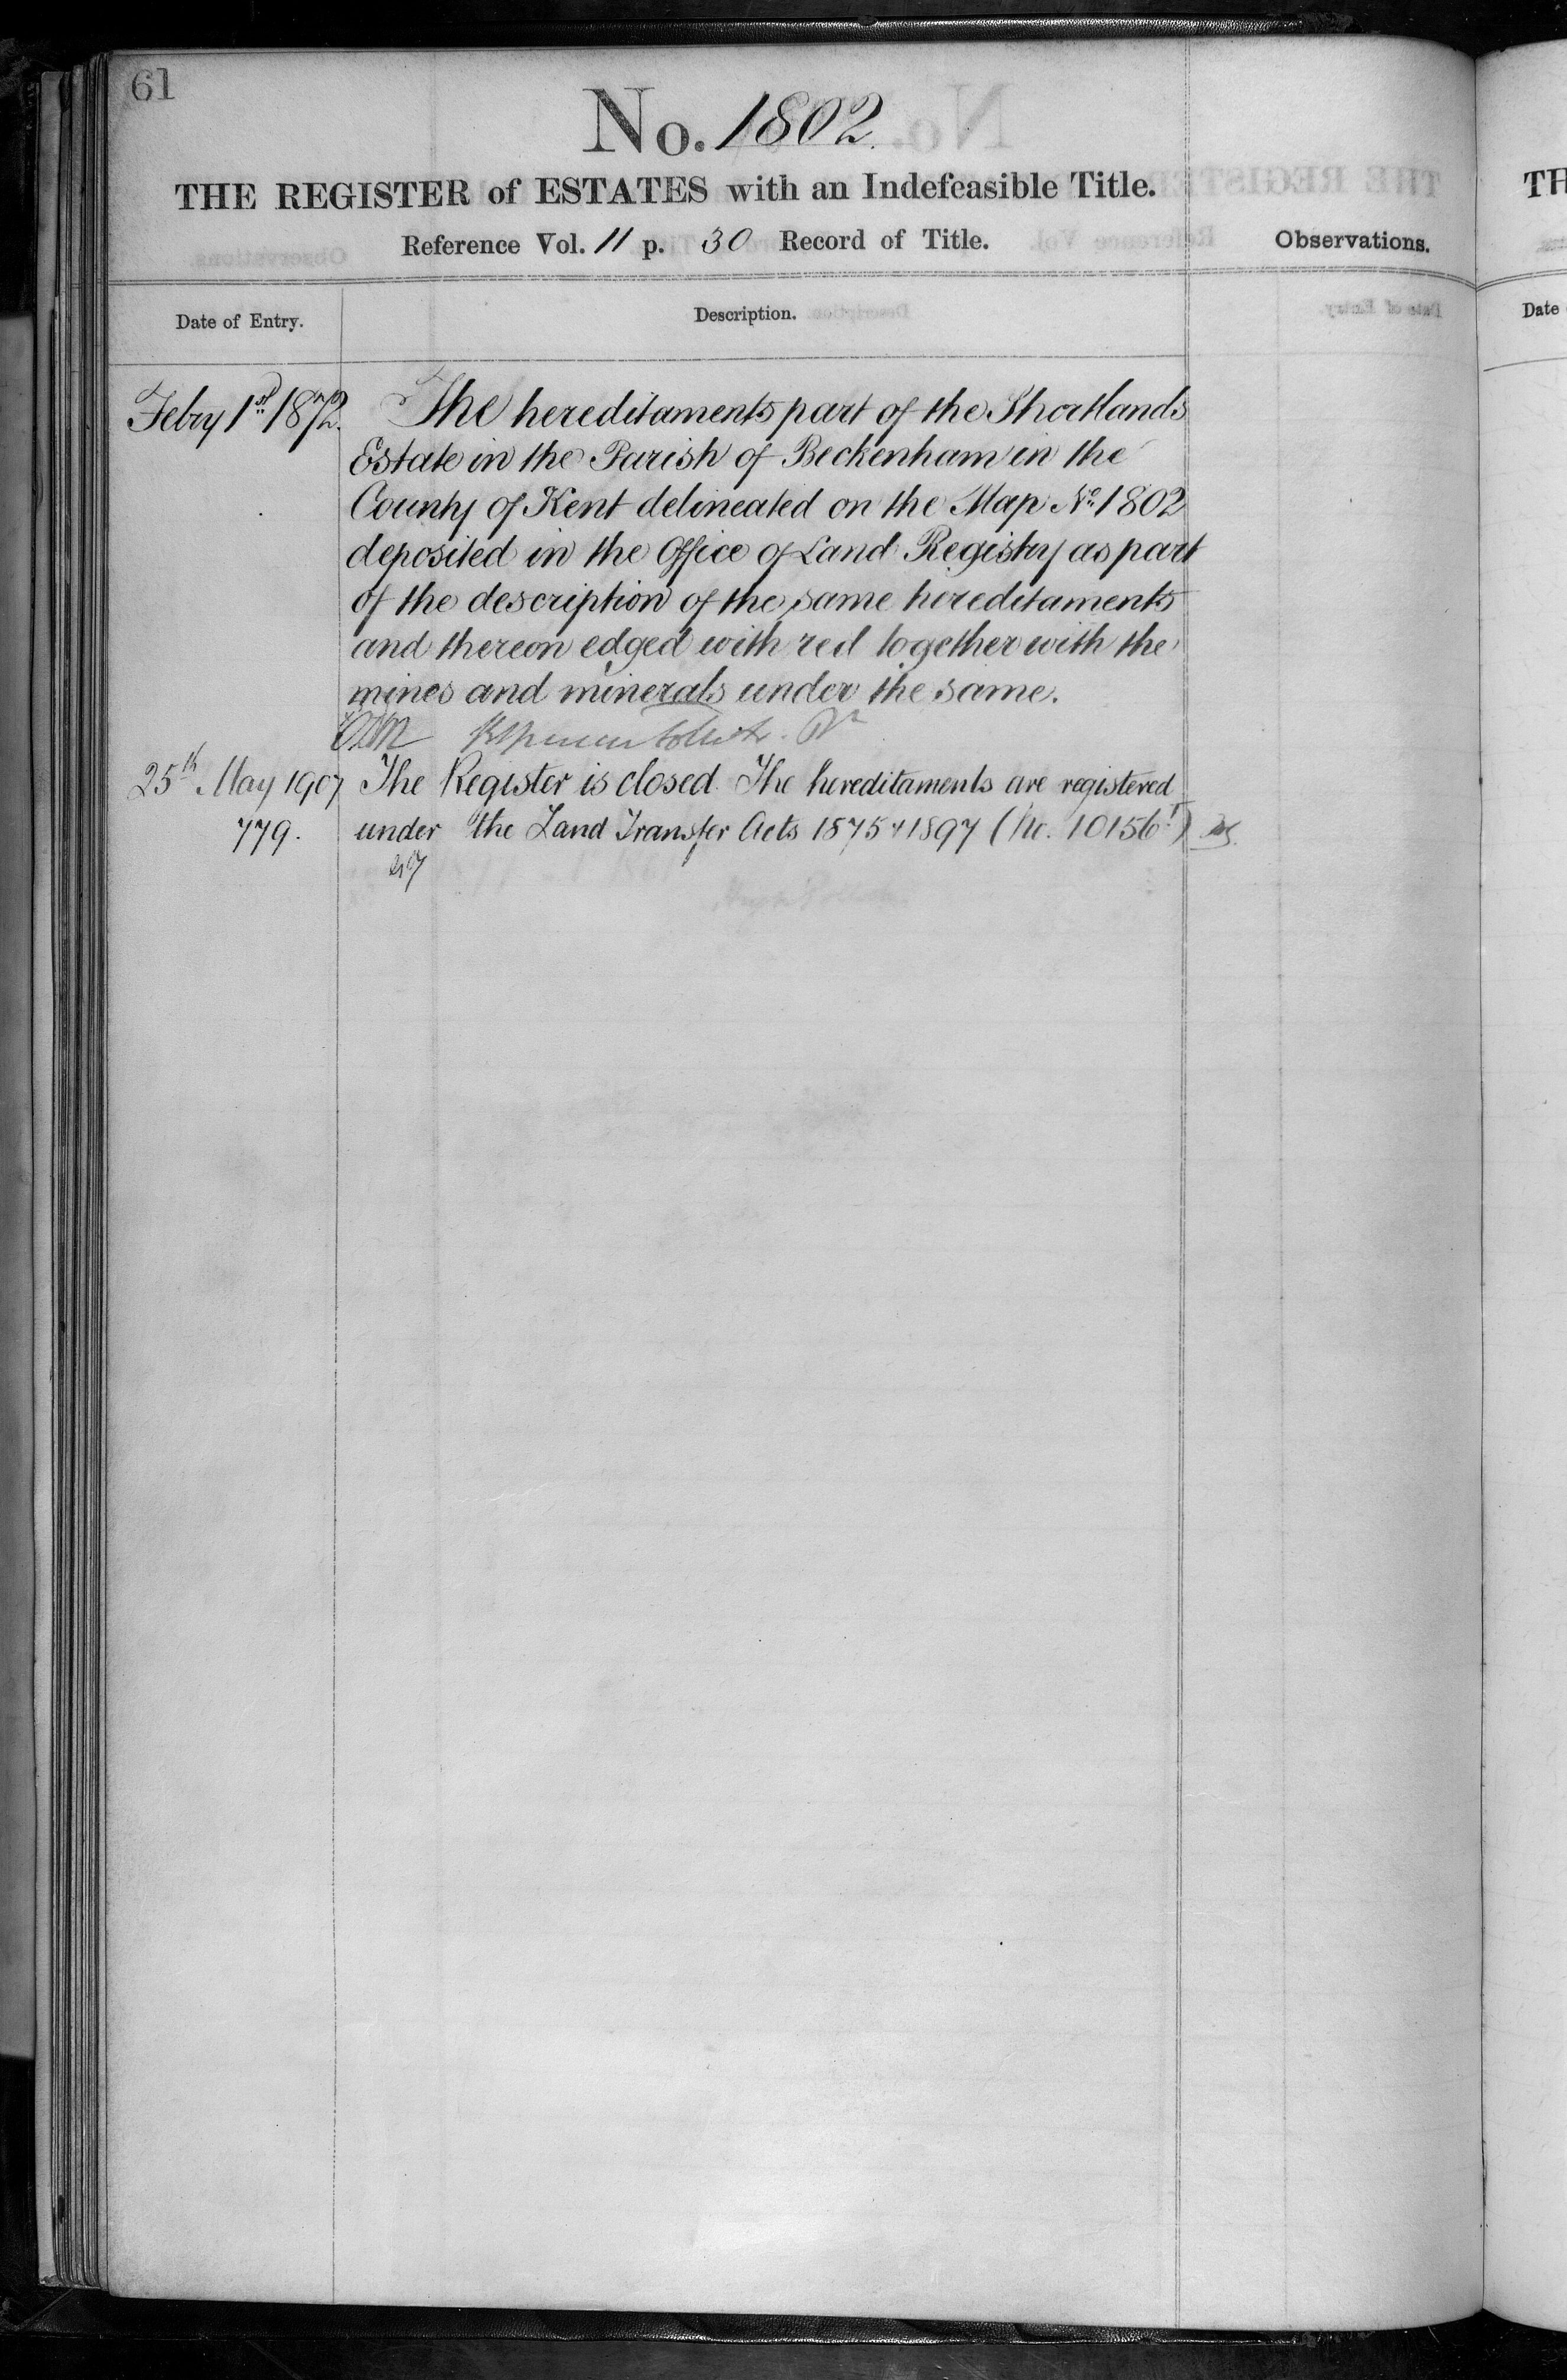 61
No. 1802.
THE REGISTER of ESTATES with an Indefeasible Title.
Reference Vol. 11 p. 30 Record of Title.
Observations.
Date of Entry.
Description.
Febry 1st 1872.
The hereditaments part of the Shortlands
Estate in the Parish of Beckenham in the
County of Kent delineated on the Map No. 1802
deposited in the Office of Land Registry as part
of the description of the same hereditaments
and thereon edged with red together with the
mines and minerals under the same.
25th May 1907
The Register is closed. The hereditaments are registered
779.
under the Land Transfer Acts 1875 & 1897 (No. 10156)
TH
Date